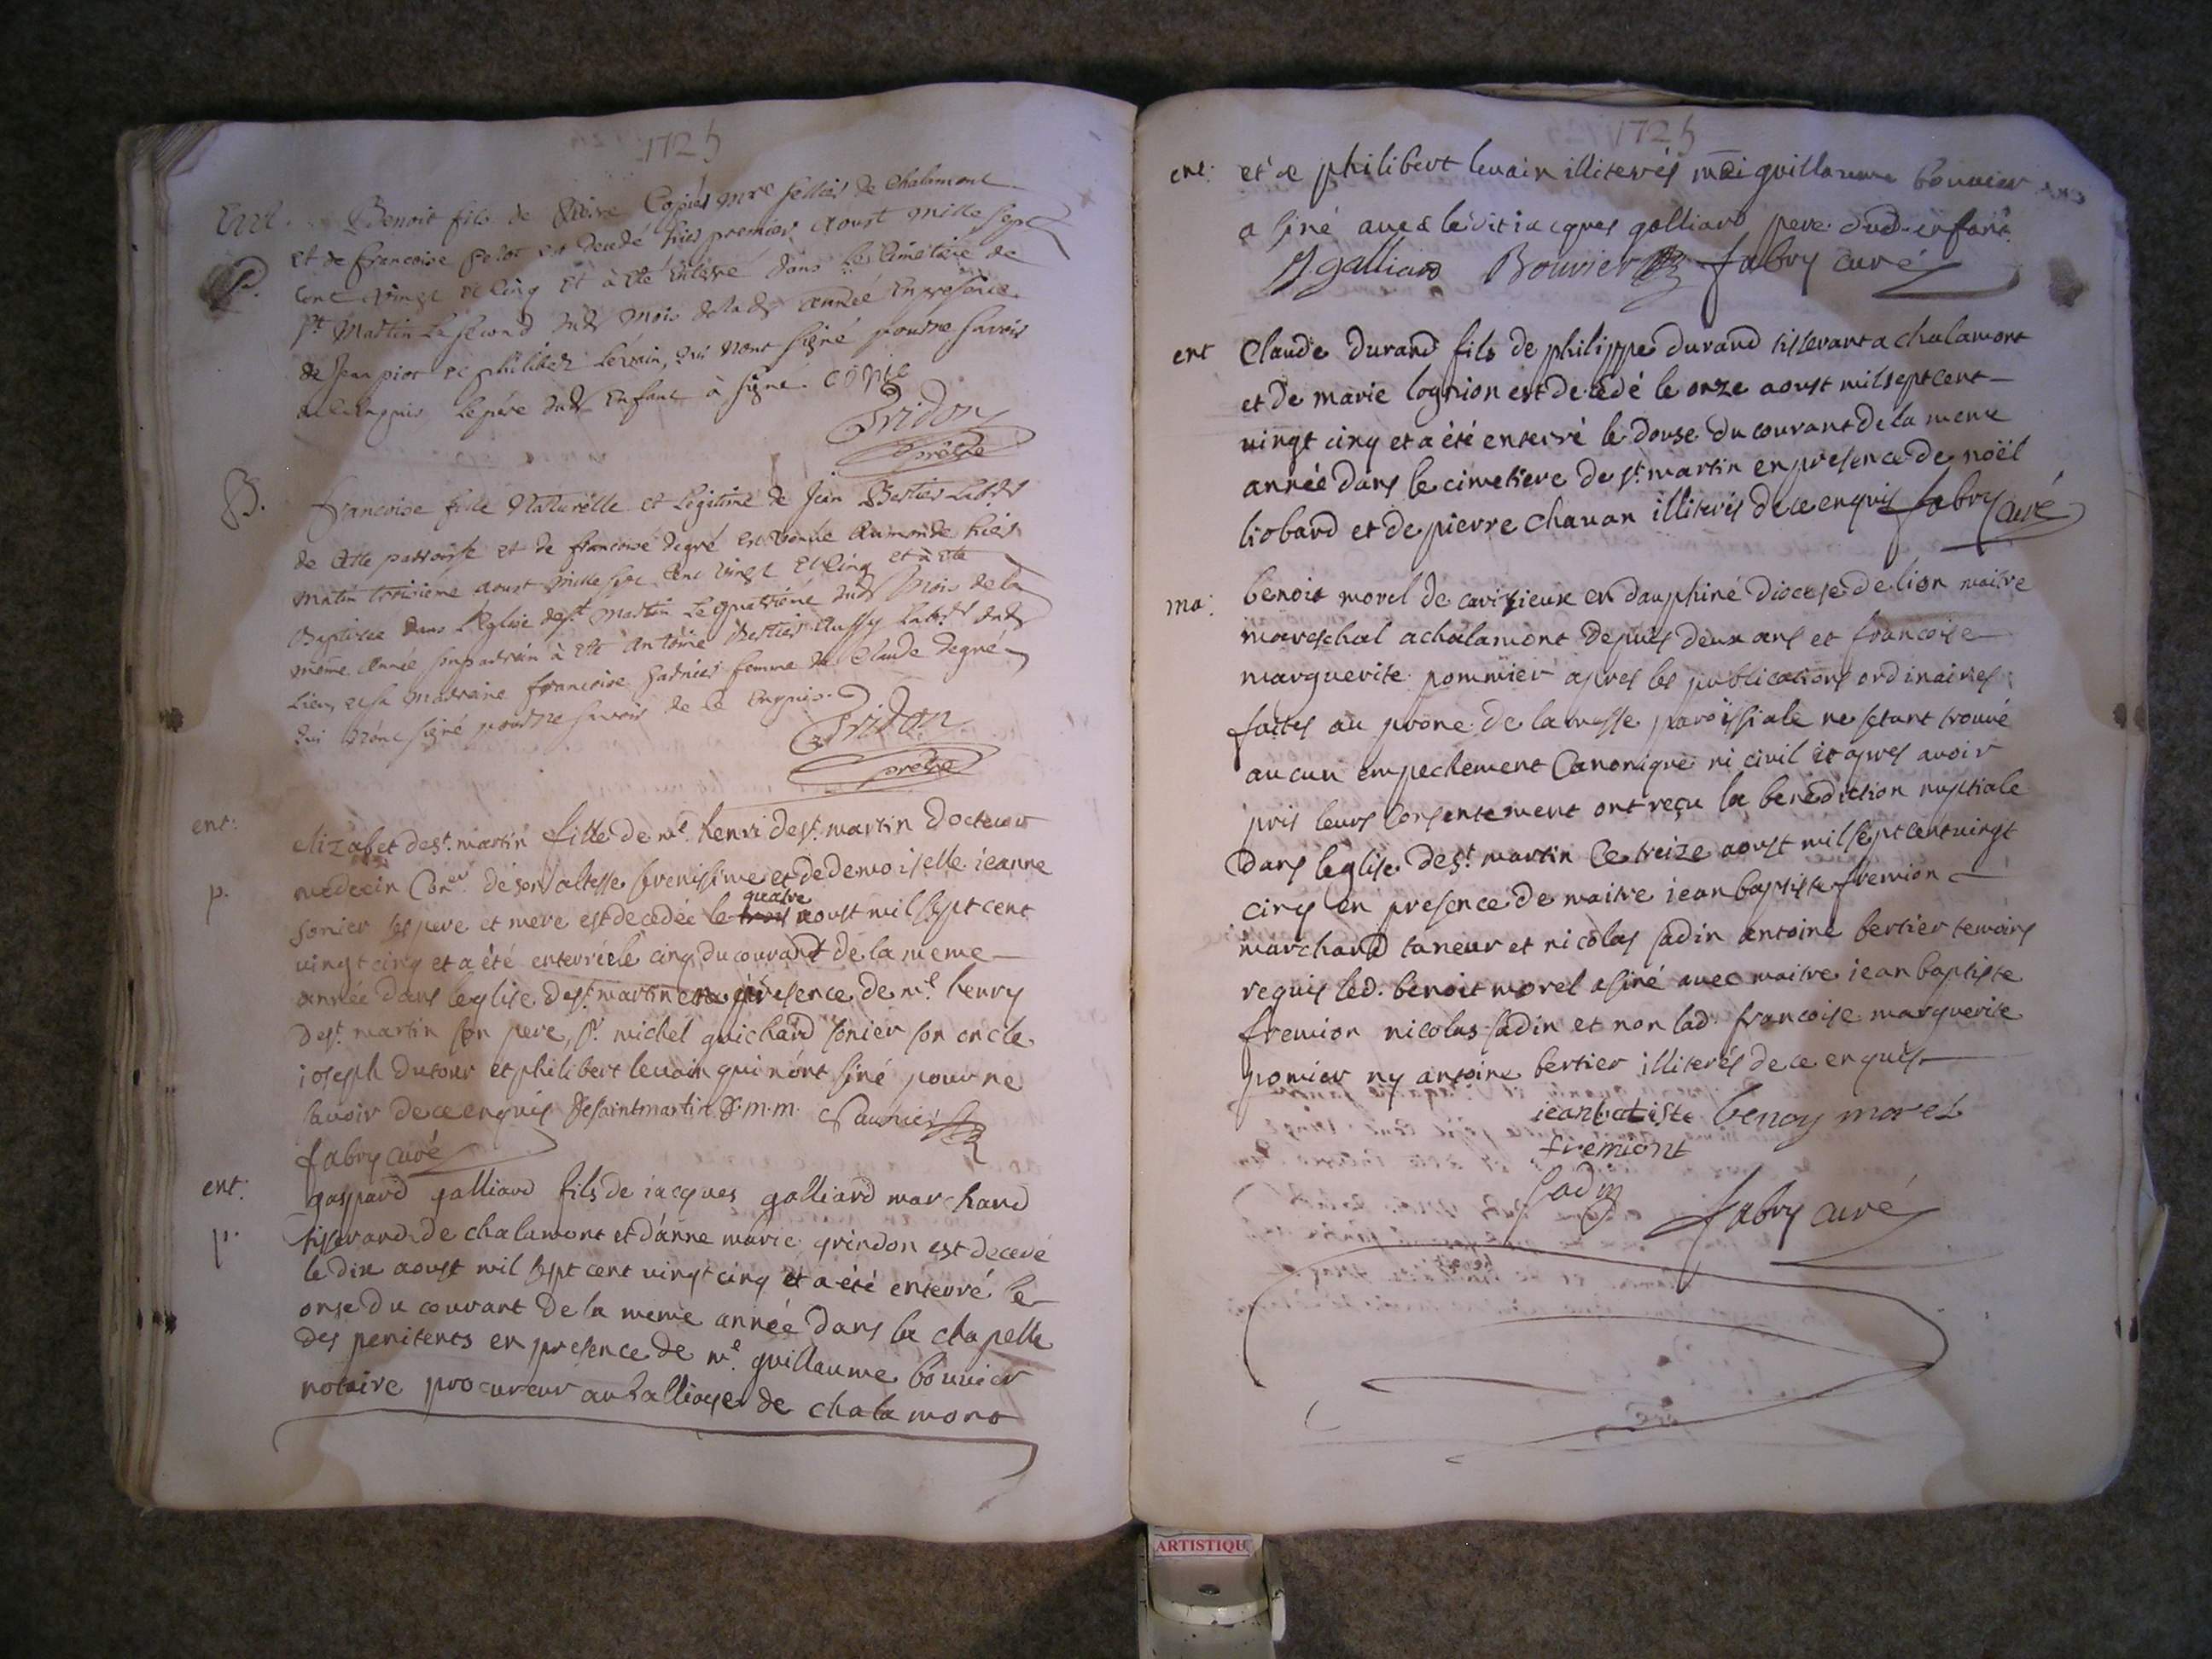 1725
Ent. Benoit fils de Pierre Copier mre sellier de Chalamont
et de francoise est decedé hier premier aoust mille sept
P. cent vingt et cinq et à été enterré dans le Cimetiere de
st Martin le second dud mois de lad année en presence
de Jean piot et philibert levain, qui n'ont signé pour ne savoir
de ce enquis le père dud enfant à signé. copie
Fridon
prêtre
B. francoise fille Naturelle et Légitime de Jean Bertier Labr
de cette parroisse et de francoise degré est venüe au monde hier
matin troisième aoust mille sept cent vingt et cinq et à été
Baptisée dans l'Eglise de st Martin le quatrième dud mois de la
même année son padrain à été Antoine Bertier aussy labr dud
lieu, et sa madraine francoise garnier femme de Claude degré
qui n'ont signé pour ne savoir de ce enquis.
Fridon
prêtre
ent: elizabet de st. martin fille de me. henri de st. martin docteur
medecin Coner. de son altesse serenissime et de demoiselle jeanne
quatre
p. sonier ses pere et mere est decedée le trois aoust mil sept cent
vingt cinq et a été enterrée le cinq du courant de la meme
année dans leglise de st. martin en presence de me. henry
de st. martin son pere, sr. michel guichard sonier son oncle
joseph dutour et philibert levain qui n'ont siné pour ne
savoir de ce enquis Desaintmartin D.m.m. Saunier
fabry curé
ent: gaspard galliard fils de jacques galliard marchand
p. tisserand de chalamont et d'anne marie grindon est decedé
le dix aoust mil sept cent vingt cinq et a été enterré le
onse du courant de la meme année dans la chapelle
des penitents en presence de me. guillaume bouvier
notaire procureur au balliage de chalamont
1725
ent: et de philibert levain illiterés guillaume bouvier
a siné avec ledit jacques galliard pere dud. enfant
J galliard Bouvier fabry curé
ent Claude durand fils de philippe durand tisserant a chalamont
et de marie lognion est decedé le onze aoust mil sept cent
vingt cinq et a été enterré le douse du courant de la meme
année dans le cimetiere de st. martin en presence de noël
liobard et de pierre chavan illiterés de ce enquis fabry curé
ma: benoit morel de cavisieux en dauphiné diocese de lion maitre
mareschal a chalamont depuis deux ans et francoise
marguerite pommier apres les publications ordinaires
faites au prone de la messe paroissiale ne setant trouvé
aucun empechement Canonique ni civil et apres avoir
pris leurs consentement ont reçu la benediction nuptiale
dans leglise de st. martin ce treize aoust mil sept cent vingt
cinq en presence de maitre jean baptiste fremion
marchand taneur et nicolas sadin antoine bertier temoins
requis led. benoit morel a siné avec maitre jean baptiste
fremion nicolas sadin et non lad. francoise marguerite
pomier ny antoine bertier illiterés de ce enquis
jean batiste benoy morel
fremiont
sadin
fabry curé
ARTISTIQU